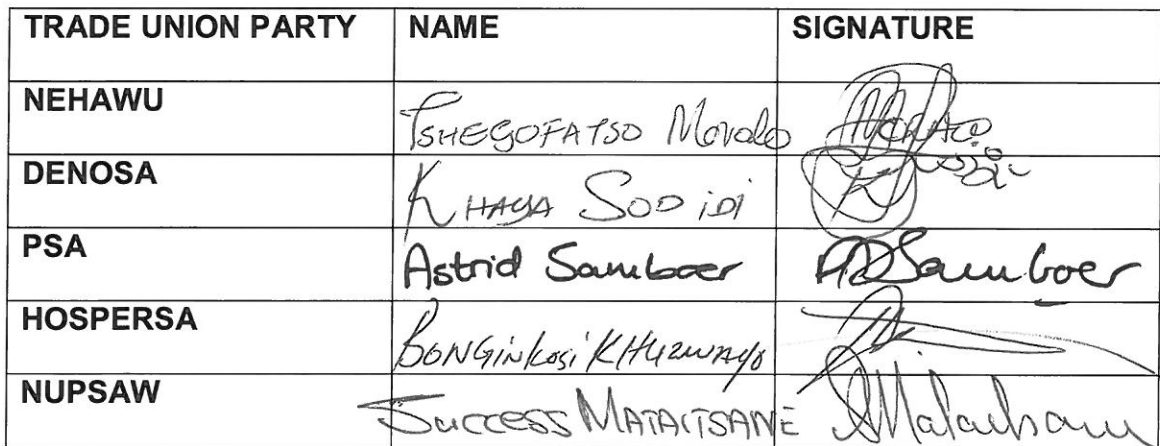 TRADE UNION PARTY NAME SIGNATURE
NEHAWU TSHEGOFATSO Moralo
DENOSA KHAYA SODIDI
PSA Astrid Samboer ADSamboer
HOSPERSA BONGinkosi KHUZWAYO
NUPSAW SUCCESS MATAITSANE